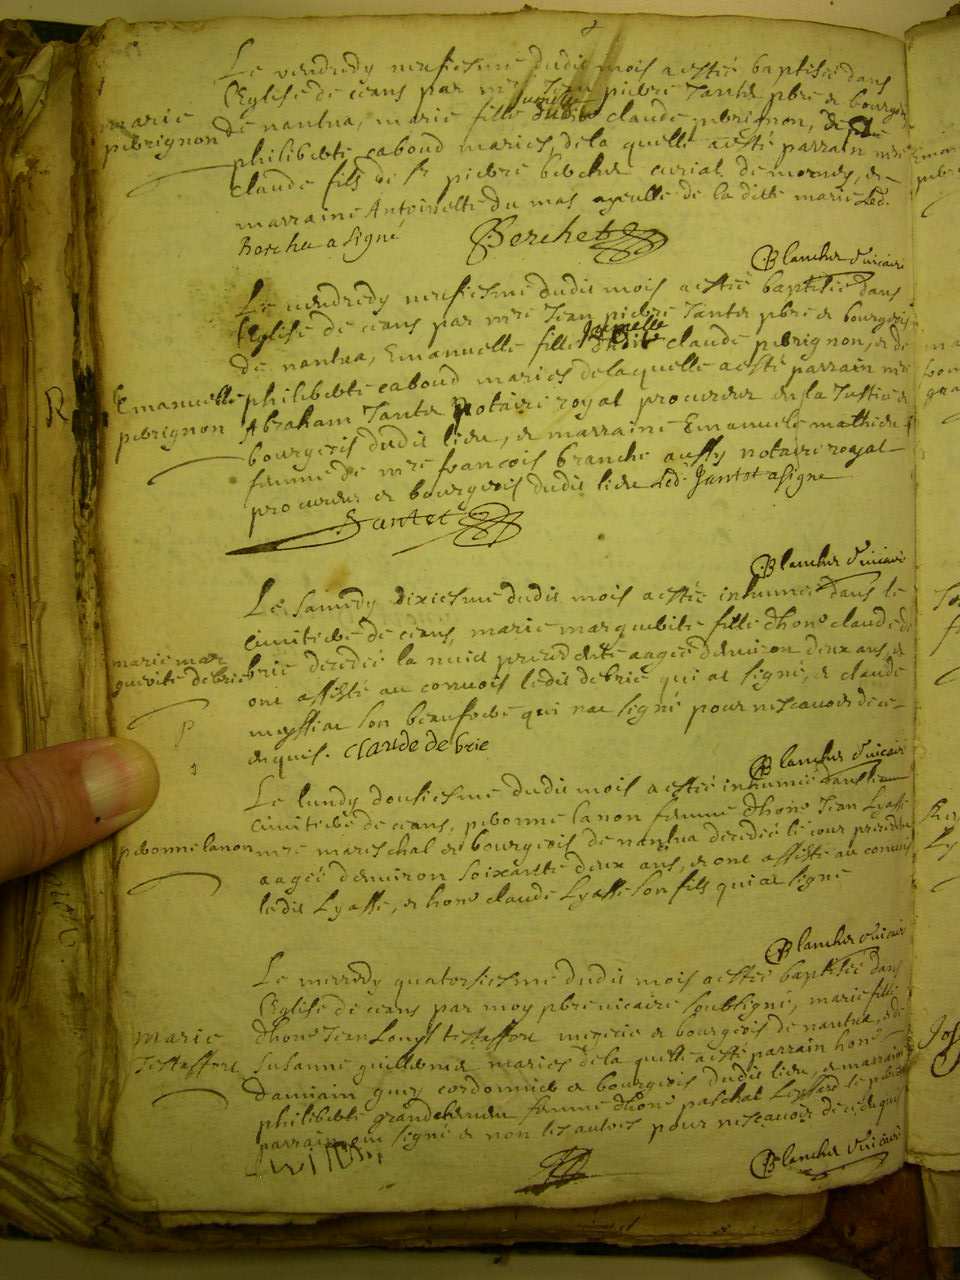 Le vendredy neufiesme dudit mois a esté baptisée dans
l'Eglise de ceans par mre Jean pierre Jantet pbre et bourgeois
marie pebrignon
de nantua, marie fille jumelle dudit claude pebrignon, et de
philiberte caboud mariés, de la quelle a esté parrain mre
claude fils de Sr pierre berchet curial de mornay, et
marraine Antoinette du mas ayeulle de la ditte marie Led.
Berchet a signé
Berchet
Blanchet vicaire
Le vendredy neufiesme dudit mois a esté baptisée dans
l'Eglise de ceans par mre Jean pierre Jantet pbre et bourgeois
de nantua, Emanuelle fille jumelle dudit claude pebrignon, et de
R
Emanuelle pebrignon
philiberte caboud mariés de laquelle a esté parrain mre
Abraham Jantet notaire royal procureur en la Justice et
bourgeois dudit lieu, et marraine Emanuele mathieu
femme de mre francois branche aussy notaire royal
procureur et bourgeois dudit lieu Led. Jantet a signé
Jantet
Blanchet vicaire
Le Samedy dixiesme dudit mois a esté inhumée dans le
cimitiere de ceans, marie marguerite fille d'hone claude de
marie marguerite de brie
brie decedée la nuict precedente aagée d'environ deux ans, et
ont assisté au convois ledit de brie qui a signé, et claude
son beaufrere qui n'a signé pour ne scavoir de ce
enquis. claude de brie
Blanchet vicaire
Le lundy dousiesme dudit mois a esté inhumée dans le
cimitiere de ceans, pebonne lanon femme d'hone Jean Lyasse
pebonne lanon
mre mareschal et bourgeois de nantua decedée le jour precedent
aagée d'environ soixante deux ans, et ont assisté au convois
ledit Lyasse, et hone claude Lyasse son fils qui a signé
Blanchet vicaire
Le mecredy quatorsiesme dudit mois a esté baptisée dans
l'Eglise de ceans par moy pbre vicaire soubsigné, marie fille
marie
d'hone Jean Louys et bourgeois de nantua, et de
Susanne mariés de la quelle a esté parrain hone
damian guy cordonnier et bourgeois dudit lieu, et marraine
philiberte femme d'hone paschal le
parrain signé et non les autres pour ne scavoir de ce enquis
Blanchet vicaire